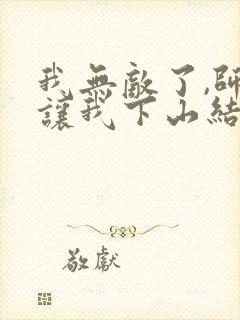 我無敵了,師
讓我下山結
敬獻